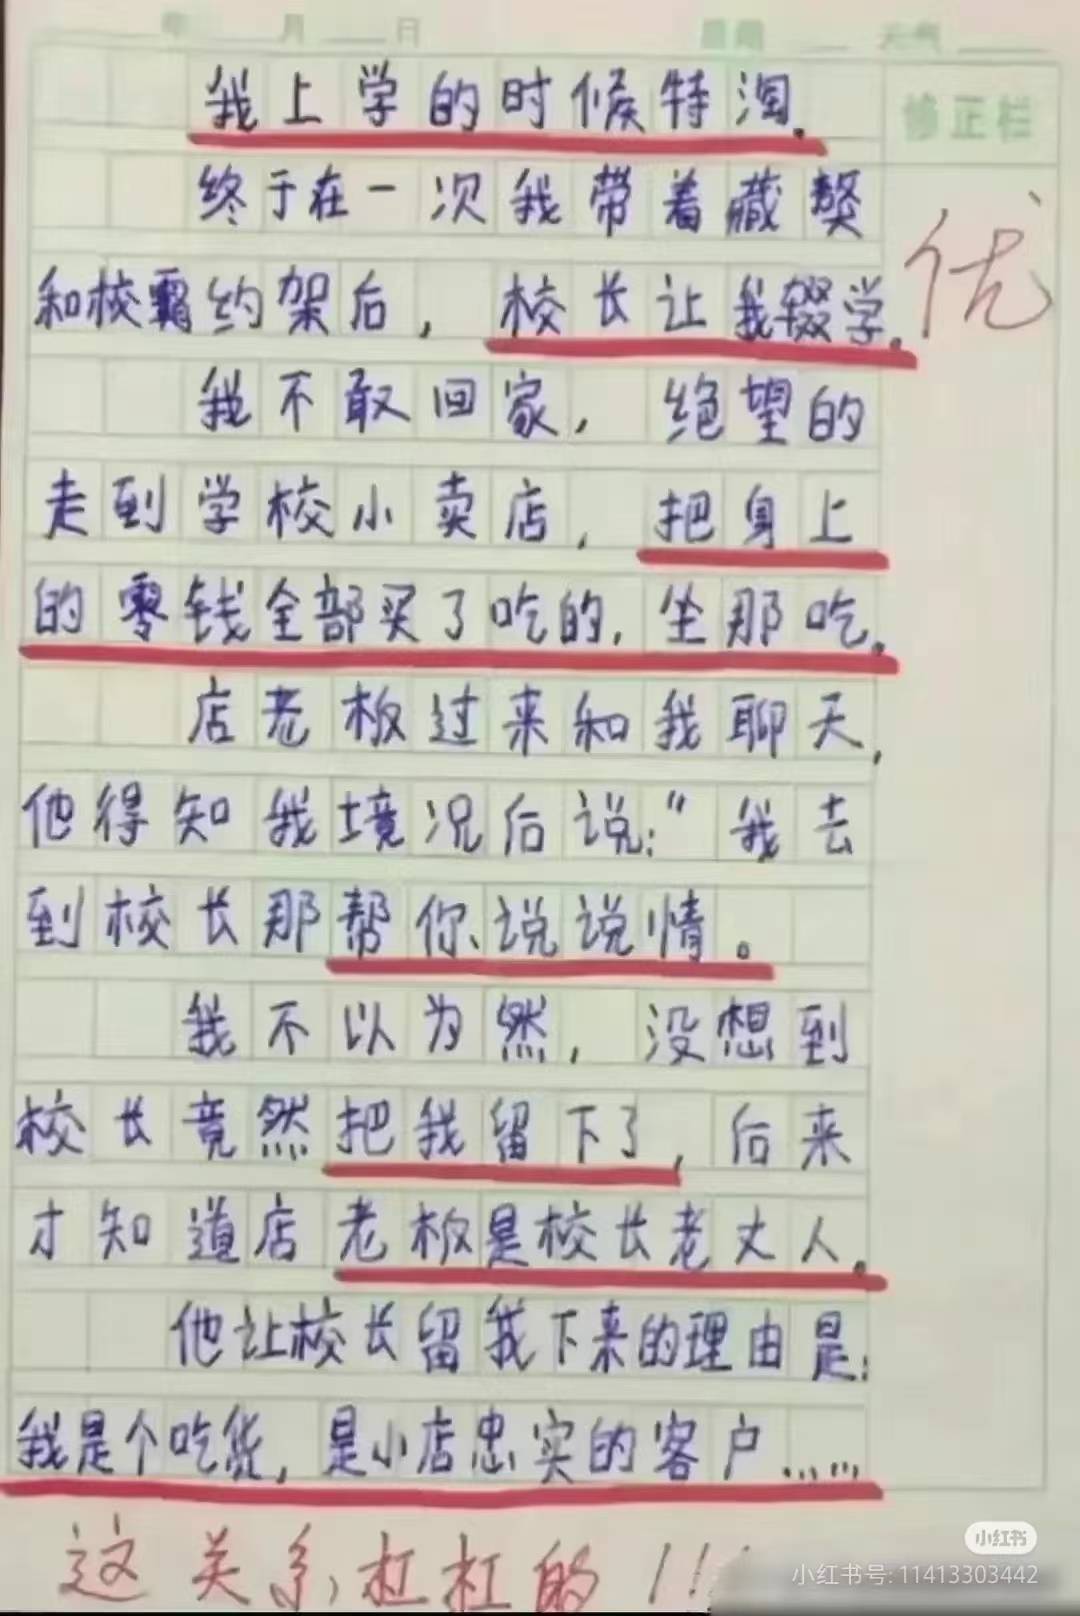 年 月 日 星期 天气
我上学的时候特淘.
修正栏
终于在一次我带着藏獒
优
和校霸约架后，校长让我辍学.
我不敢回家，绝望的
走到学校小卖店，把身上
的零钱全部买了吃的，坐那吃.
店老板过来和我聊天，
他得知我境况后说:“我去
到校长那帮你说说情。
我不以为然，没想到
校长竟然把我留下了，后来
才知道店老板是校长老丈人.
他让校长留我下来的理由是:
我是个吃货，是小店忠实的客户......
这关系杠杠的!!!
小红书
小红书号: 11413303442